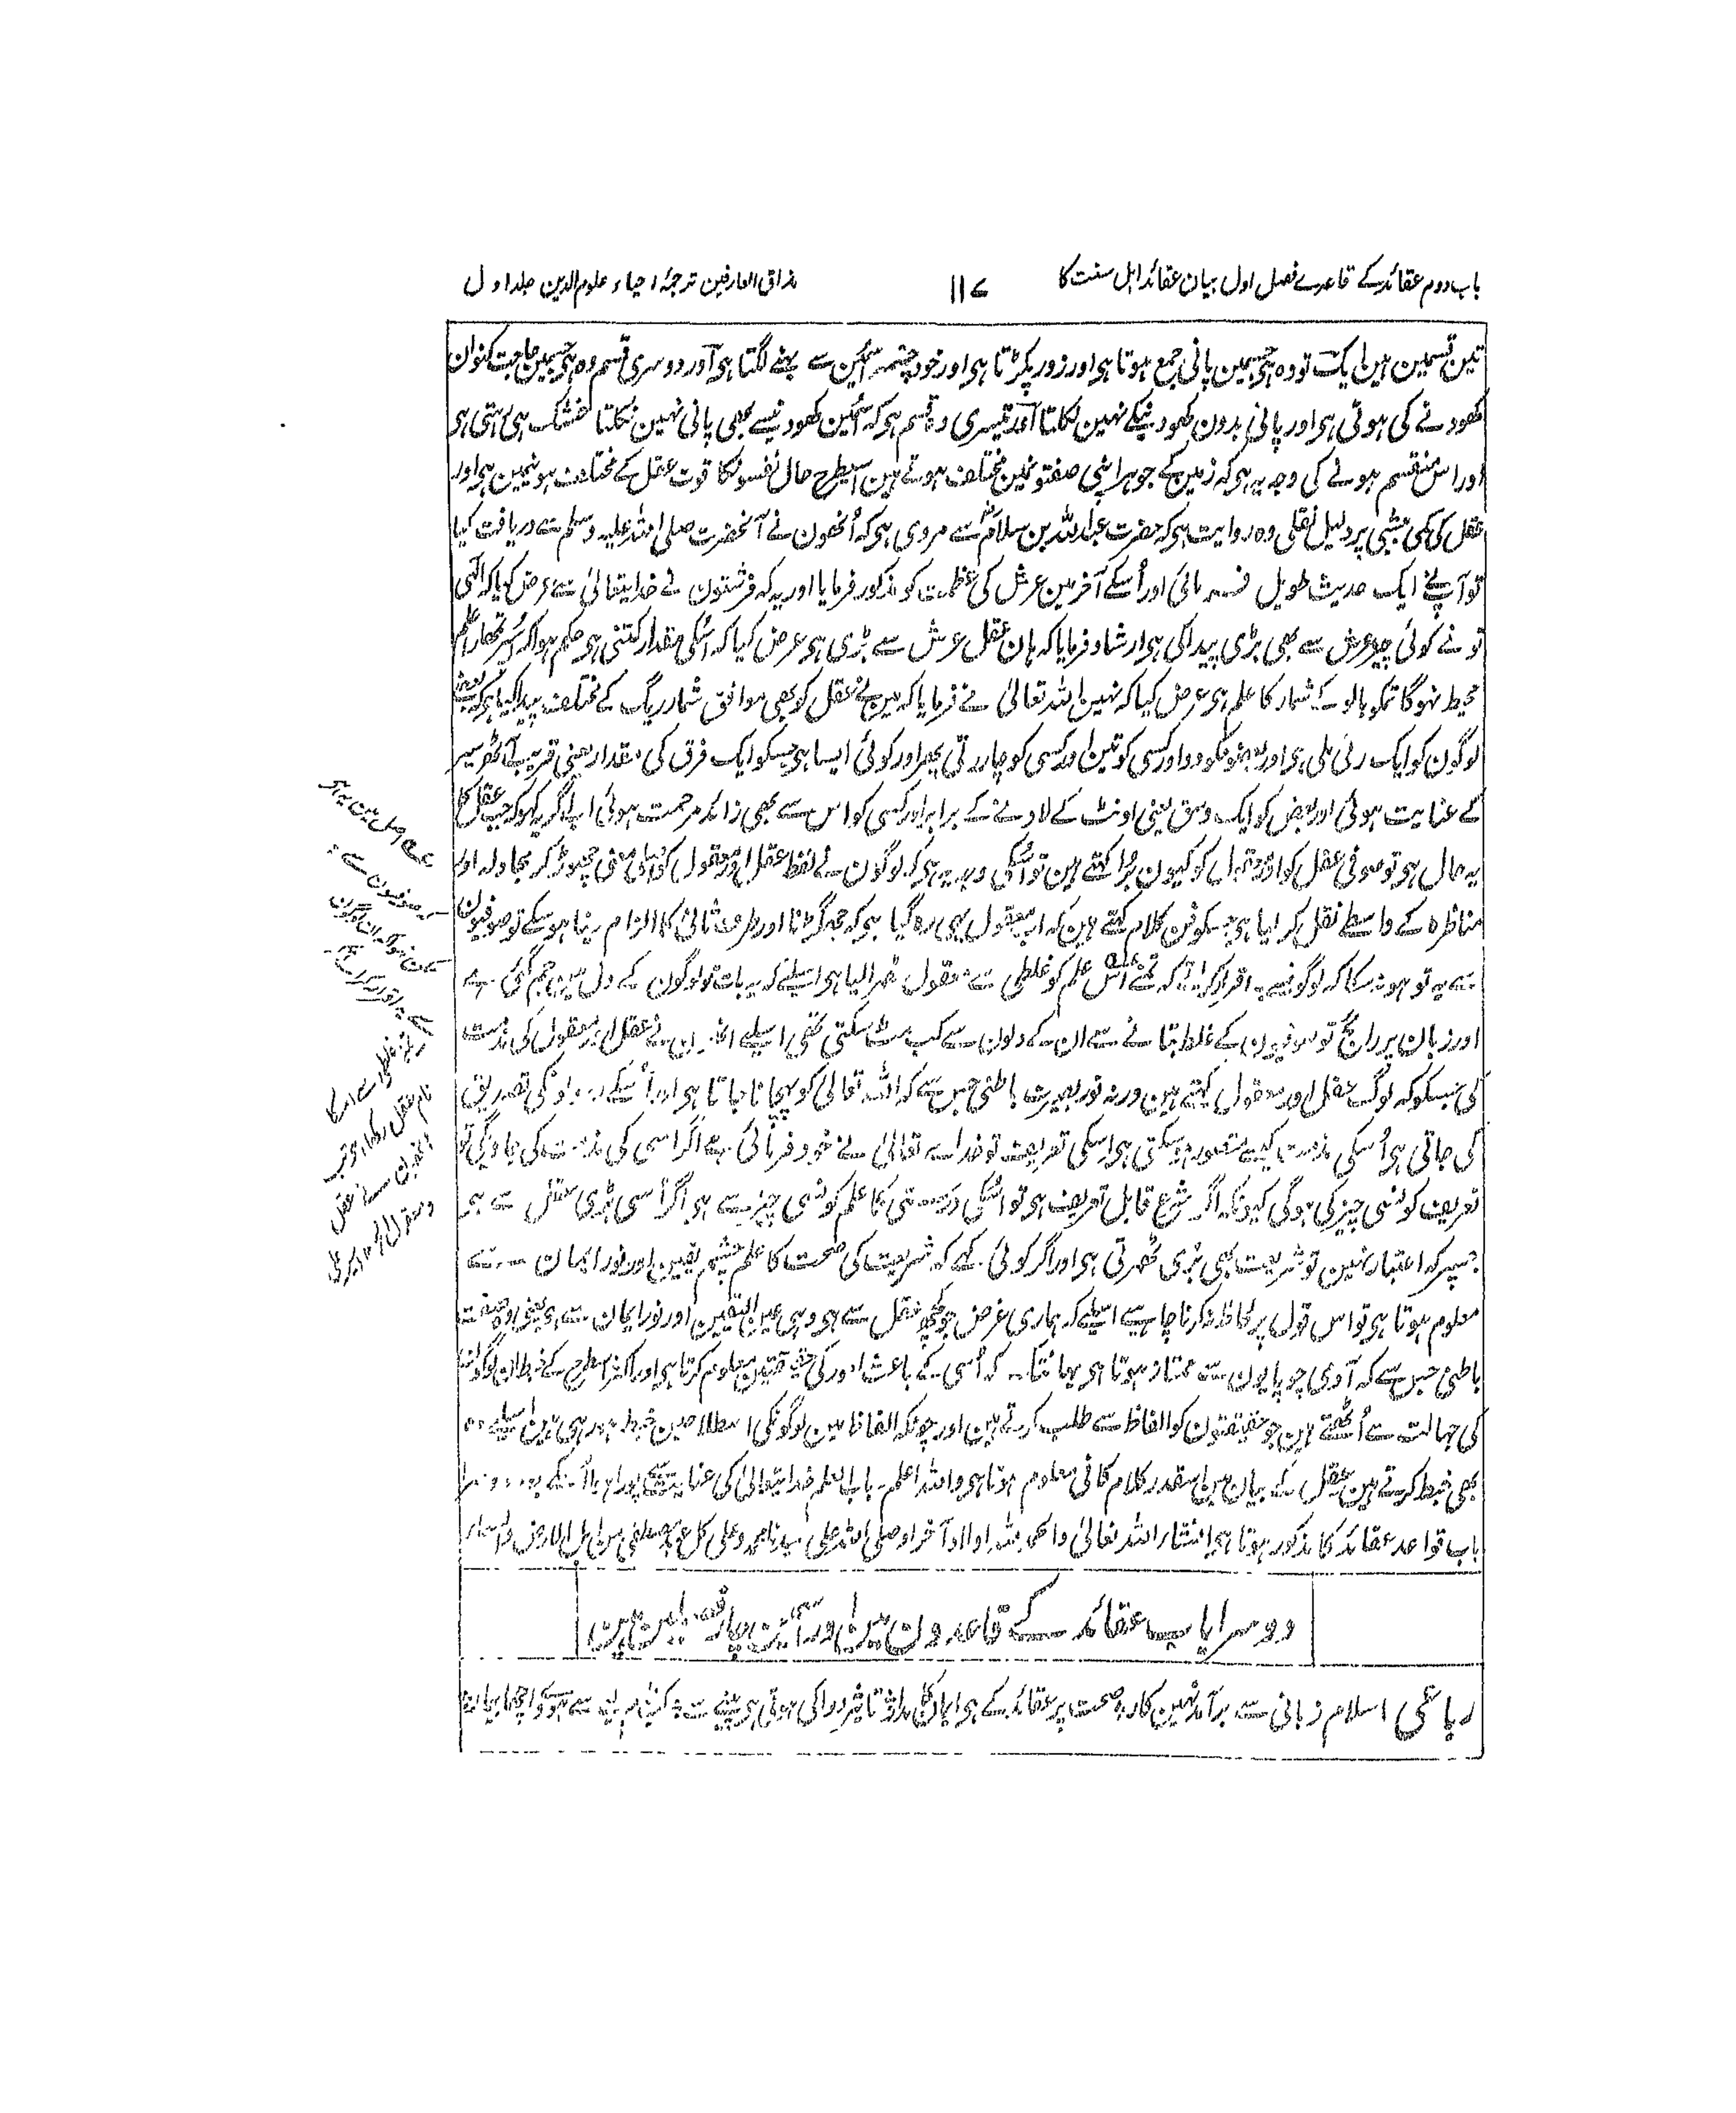 باب دوم عقائد کے قاعدے فصل اول بیان عقائد اہل سنت کا
۱۱۷
مذاق العارفین ترجمۂ احیاء علوم الدین جلد اول
تین قسمین ہین ایک تو وہ ہی جسمین پانی جمع ہوتا ہی اور زور پکڑتا ہی اور خود چشمہ آئین سے بہنے لگتا ہی اور دوسری قسم وہ ہی جسمین حاجت کنوان
کھودنے کی ہوتی ہی اور پانی بدون کھودنیکے نہین نکلتا اور تیسری وہ قسم ہی کہ آئین کھودنیسے بھی پانی نہین نکلتا خشک ہی رہتی ہی
اور اس منقسم ہونے کی وجہ یہ ہی کہ زمین کے جوہر اپنی صفتونمین مختلف ہوتے ہین اسیطرح حال نفسونکا قوت عقل کے مختلف ہونیمین ہی اور
عقل کی کمی بیشی پر دلیل نقلی وہ روایت ہی کہ حضرت عبداللہ بن سلام سے مروی ہی کہ اُنھون نے آنحضرت صلی اللہ علیہ وسلم سے دریافت کیا
تو آپنے ایک حدیث طویل فرمائی اور اُسکے آخر مین عرش کی عظمت کو مذکور فرمایا اور یہ کہ فرشتون نے خدایتعالیٰ سے عرض کیا کہ الٰہی
تو نے کوئی چیز عرش سے بھی بڑی پیدا کی ہی ارشاد فرمایا کہ ہان عقل عرش سے بڑی ہی عرض کیا کہ اُسکی مقدار کتنی ہی حکم ہوا کہ اُسپر تمھارا علم
محیط نہوگا تمکو بالو کے شمار کا علم ہی عرض کیا کہ نہین اللہ تعالیٰ نے فرمایا کہ مین نے عقل کو بھی موافق شمار ریگ کے مختلف پیدا کیا ہی کہ بعضے
لوگون کو ایک رتی ملی ہی اور بعضونکو دو اور کسی کو تین اور کسی کو چار رتی بھر اور کوئی ایسا ہی جسکو ایک فرق کی مقدار یعنی قریب آٹھ سیر
کے عنایت ہوئی اور بعض کو ایک وسق یعنی اونٹ کے لادنے کے برابر اور کسی کو اس سے بھی زائد مرحمت ہوئی اب اگر یہ کہو کہ جب عقل کا
یہ حال ہی تو صوفی عقل کو اور معقول کو کیون برا کہتے ہین تو اُسکی وجہ یہ ہی کہ لوگون نے لفظ عقل اور معقول کو اصلی معنی چھوڑ کر مجادلہ اور
مناظرہ کے واسطے نقل کر لیا ہی جسکو فن کلام کہتے ہین کہ اب معقول یہی رہ گیا ہی کہ جھگڑنا اور طرف ثانی کا الزام بنا ہو سکے تو صوفیون
سے یہ تو ہو نہ سکا کہ لوگونسے یہ اقرار کرائین کہ تمنے اس علم کو غلطی سے معقول ٹھرا لیا ہی اسلیے کہ یہ بات تو لوگون کے دل مین جم گئی ہے
اور زبان پر رائج تو صوفیون کے غلط بتانے سے ان کے دلون سے کب مٹ سکتی تھی اسلیے انھون نے عقل اور معقول کی مذمت
کی جسکو کہ لوگ عقل اور معقول کہتے ہین ورنہ نور بصیرت باطنی جس سے کہ اللہ تعالیٰ کو پہچانا جاتا ہی اور اُسکے رسولونکی تصدیق
کی جاتی ہی اُسکی مذمت کیسے متصور ہوسکتی ہی اسکی تعریف تو خداے تعالیٰ نے خود فرمائی ہے اگر اسی کی مذمت کی جاویگی تو
تعریف کونسی چیز کی ہوگی کیونکہ اگر شرع قابل تعریف ہی تو اُسکی درستی کا علم کونسی چیز سے ہی اگر اُسی بڑی عقل سے ہی
جسپر کہ اعتبار نہین تو شریعت بھی بُری ٹھرتی ہی اور اگر کوئی کہے کہ شریعت کی صحت کا علم چشم یقین اور نور ایمان سے
معلوم ہوتا ہی تو اس قول پر لحاظ نہ کرنا چاہیے اسلیے کہ ہماری غرض جو کچھ عقل سے ہی وہی عین الیقین اور نور ایمان سے ہی یعنی وہ صفت
باطنی جس سے کہ آدمی چوپایون سے ممتاز ہوتا ہی یہانتک کہ اُسی کے باعث امور کی حقیقتین معلوم کرتا ہی اور اکثر اسطرح کے خبط ان لوگونکی
کی جہالت سے اُٹھتے ہین جو حقیقتون کو الفاظ سے طلب کرتے ہین اور چونکہ الفاظ مین لوگونکی اصطلاحین خبط ہو رہی ہین اسلیے وہ
بھی خبط کرتے ہین عقل کے بیان مین اسقدر کلام کافی معلوم ہوتا ہی واللہ اعلم۔ باب العلم خدایتعالیٰ کی عنایت سے پورا ہوا اُسکے بعد دوسرا
باب قواعد عقائد کا مذکور ہوتا ہی انشاء اللہ تعالیٰ والحمد للہ اولا وآخرا وصلی اللہ علی سیدنا محمد وعلی کل عبد مصطفی من اہل الارض والسماء
دوسرا باب عقائد کے قاعدون مین اور آئین چار فصلین ہین
رباعی اسلام زبانی سے برآمد نہین کار صحت پر عقائد کے ہی ایمان کا مدار تاثیر دوا کی ہوتی ہی پینے سے
اصل مین یہ ہی
کہ صوفیون سے
ممکن نہوا کہ ان لوگون
سے یہ اقرار کراتے کہ تم
نے غلطی سے اسکا
نام عقل رکھا ہی تب
انھون نے عقل
ومعقول